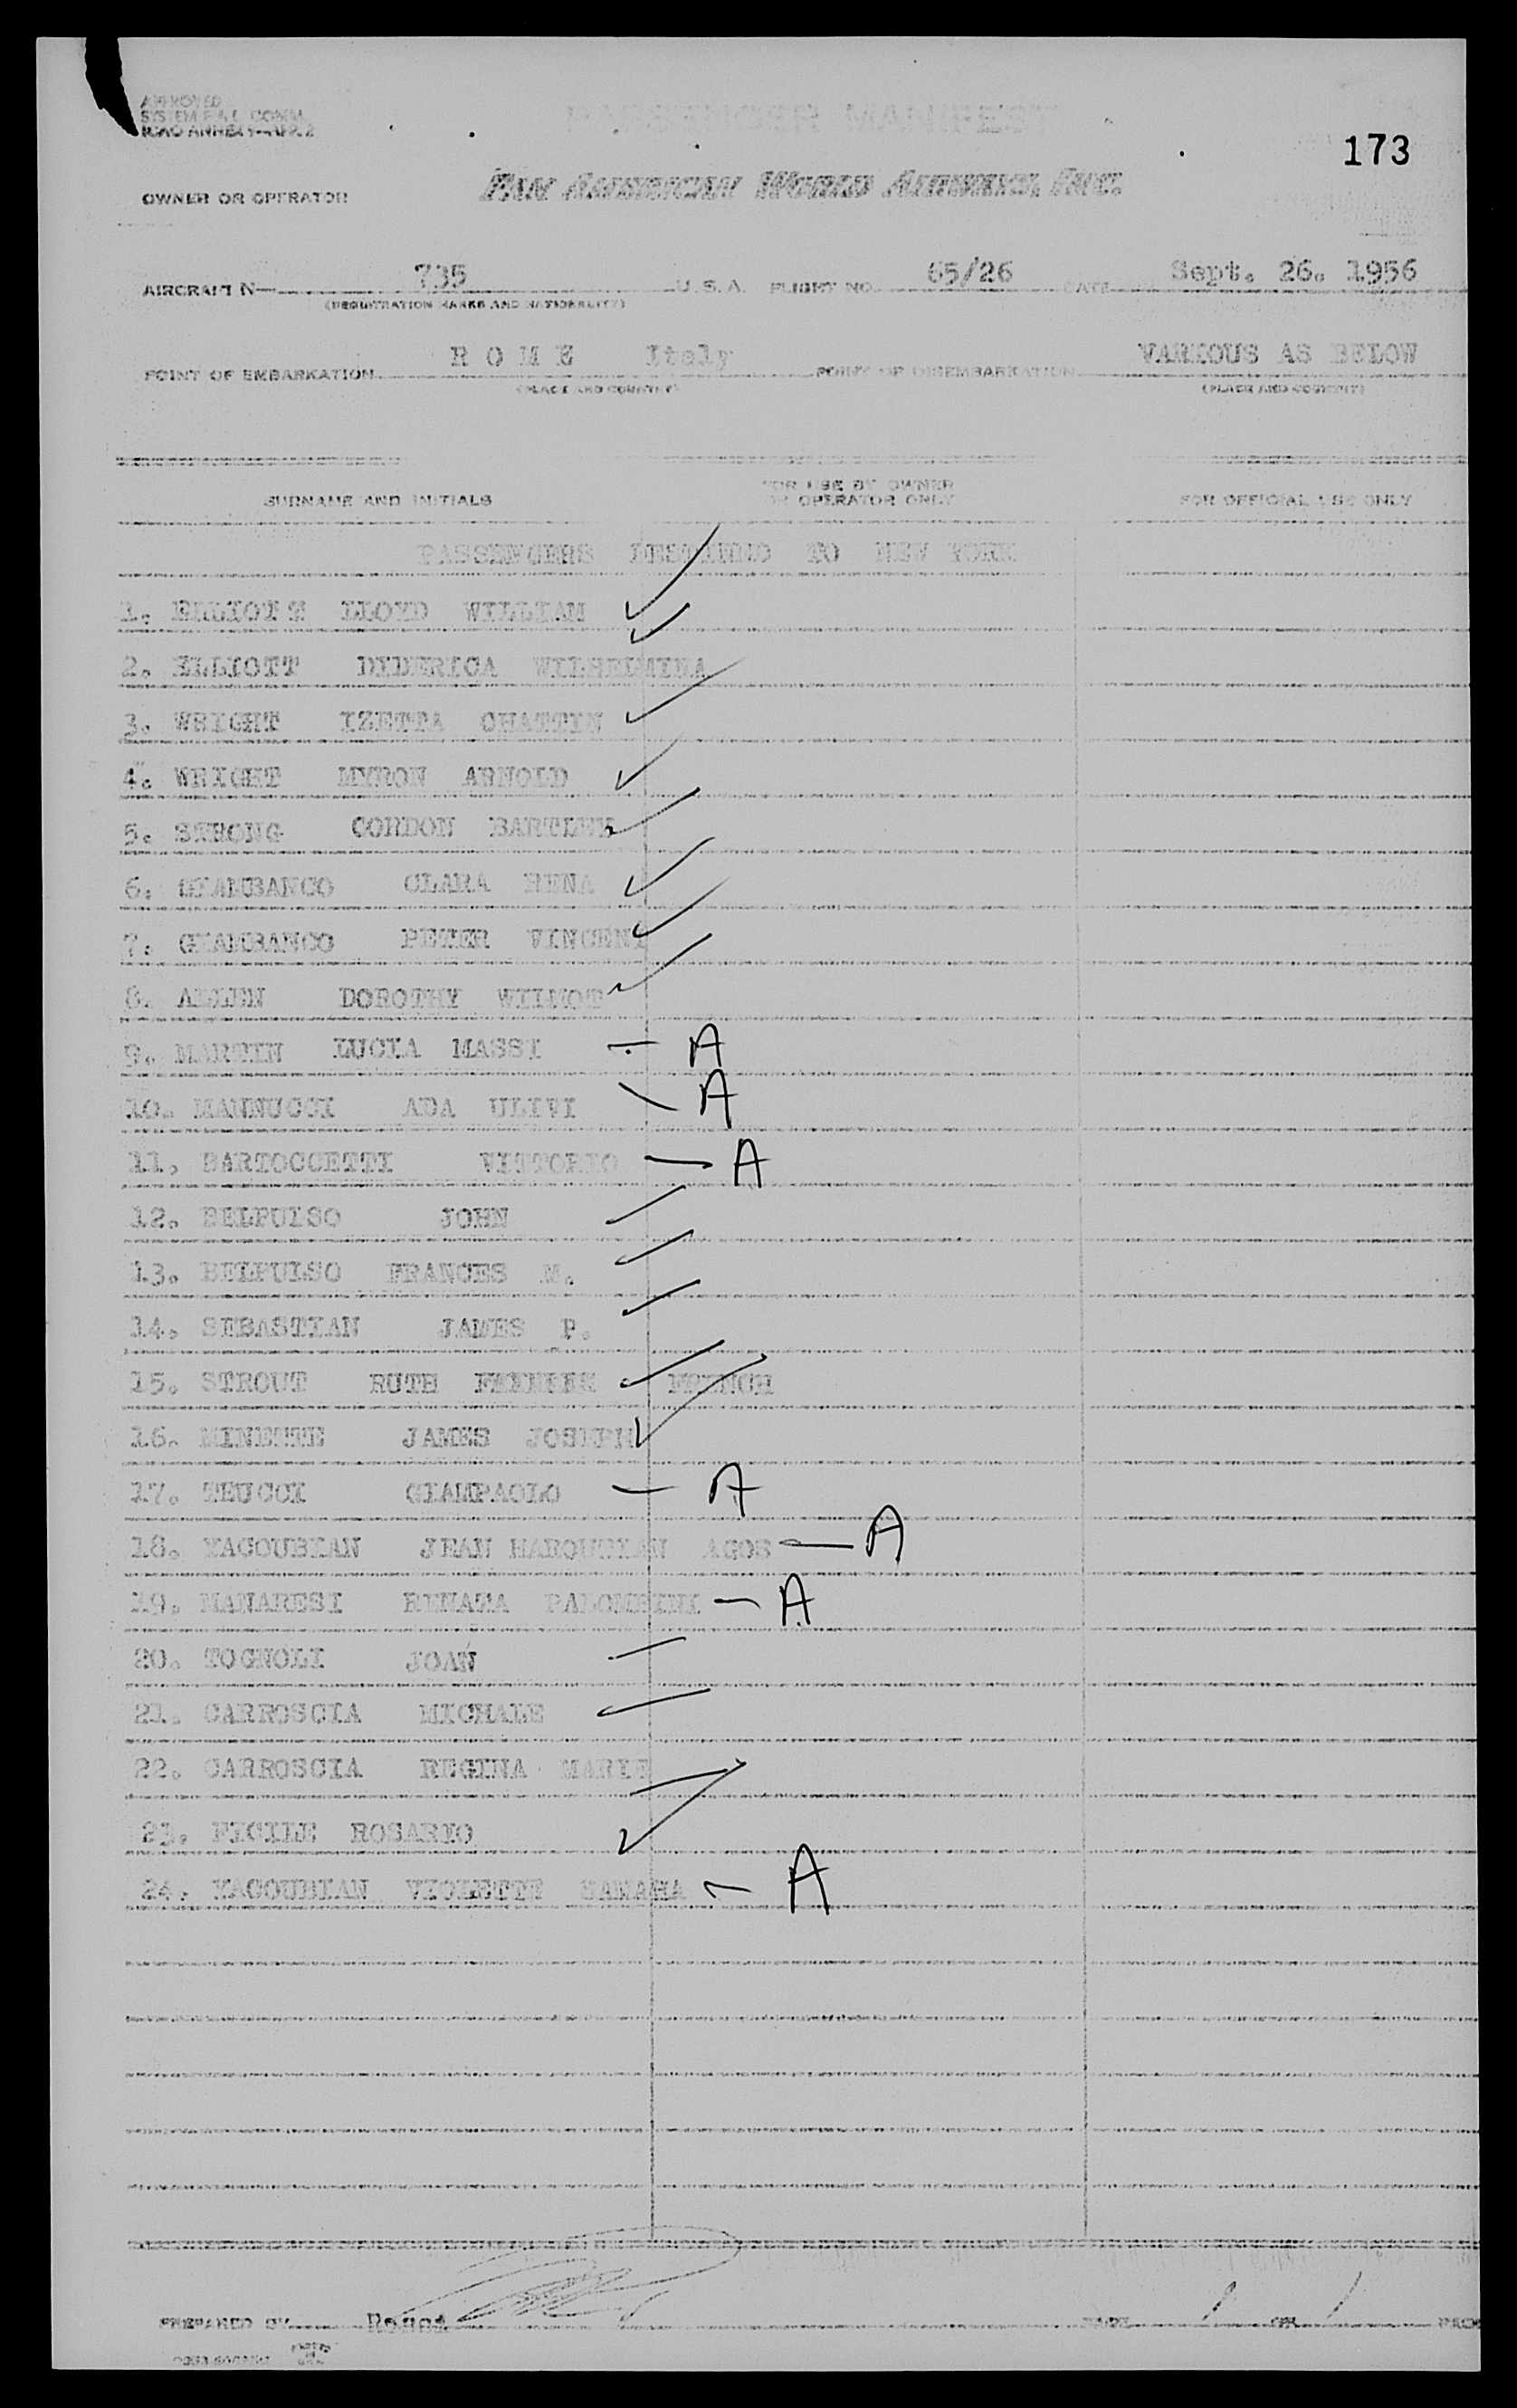 APPROVED
SYSTEM F.A.L. COMM.
ICAO ANNEX 9-APP. 2
PASSENGER MANIFEST
173
OWNER OR OPERATOR PAN AMERICAN WORLD AIRWAYS, INC.
AIRCRAFT N— 735 U. S. A. FLIGHT NO. 65/26 DATE Sept. 26. 1956
(REGISTRATION MARKS AND NATIONALITY)
POINT OF EMBARKATION R O M E Italy POINT OF DISEMBARKATION VARIOUS AS BELOW
(PLACE AND COUNTRY) (PLACE AND COUNTRY)
SURNAME AND INITIALS FOR USE BY OWNER OR OPERATOR ONLY FOR OFFICIAL USE ONLY
PASSENGERS DESTINED TO NEW YORK
1. ELLIOTT LLOYD WILLIAM ✓
2. ELLIOTT DIDERICA WILHELMINA ✓
3. WRIGHT IZETTA CHATTIN ✓
4. WRIGHT MYRON ARNOLD ✓
5. STRONG GORDON BARTLEY ✓
6. GIAMBANCO CLARA RENA ✓
7. GIAMBANCO PETER VINCENT ✓
8. ALLEN DOROTHY WILMOT ✓
9. MARTIN LUCIA MASSI — A
10. MANNUCCI ADA ULIVI — A
11. BARTOCCETTI VITTORIO — A
12. BELFULSO JOHN ✓
13. BELFULSO FRANCES M. ✓
14. SEBASTIAN JAMES P. ✓
15. STROUT RUTH ✓ FRENCH
16. MINETTE JAMES JOSEPH ✓
17. TEUCCI GIAMPAOLO — A
18. YAGOUBIAN JEAN HAROUTIAN AGOS — A
19. MANARESI RENATA PALOMBINI — A
20. TOGNOLI JOAN ✓
21. CARROSCIA MICHALE ✓
22. CARROSCIA REGINA MARIE ✓
23. FICILE ROSARIO ✓
24. YAGOUBIAN VIOLETTE SAMAHA — A
PREPARED BY DATE